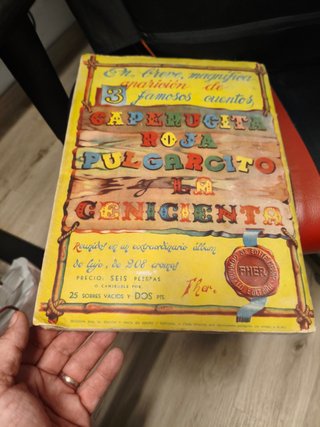 En breve, magnífica
aparición de
3 famosos cuentos,
CAPERUCITA
ROJA
PULGARCITO
Y LA
CENICIENTA
Reunidos en un extraordinario álbum
de lujo, de 208 cromos
PRECIO: SEIS PESETAS
O CANJEABLE POR
25 SOBRES VACIOS Y DOS PTS.
Fher.
FHER